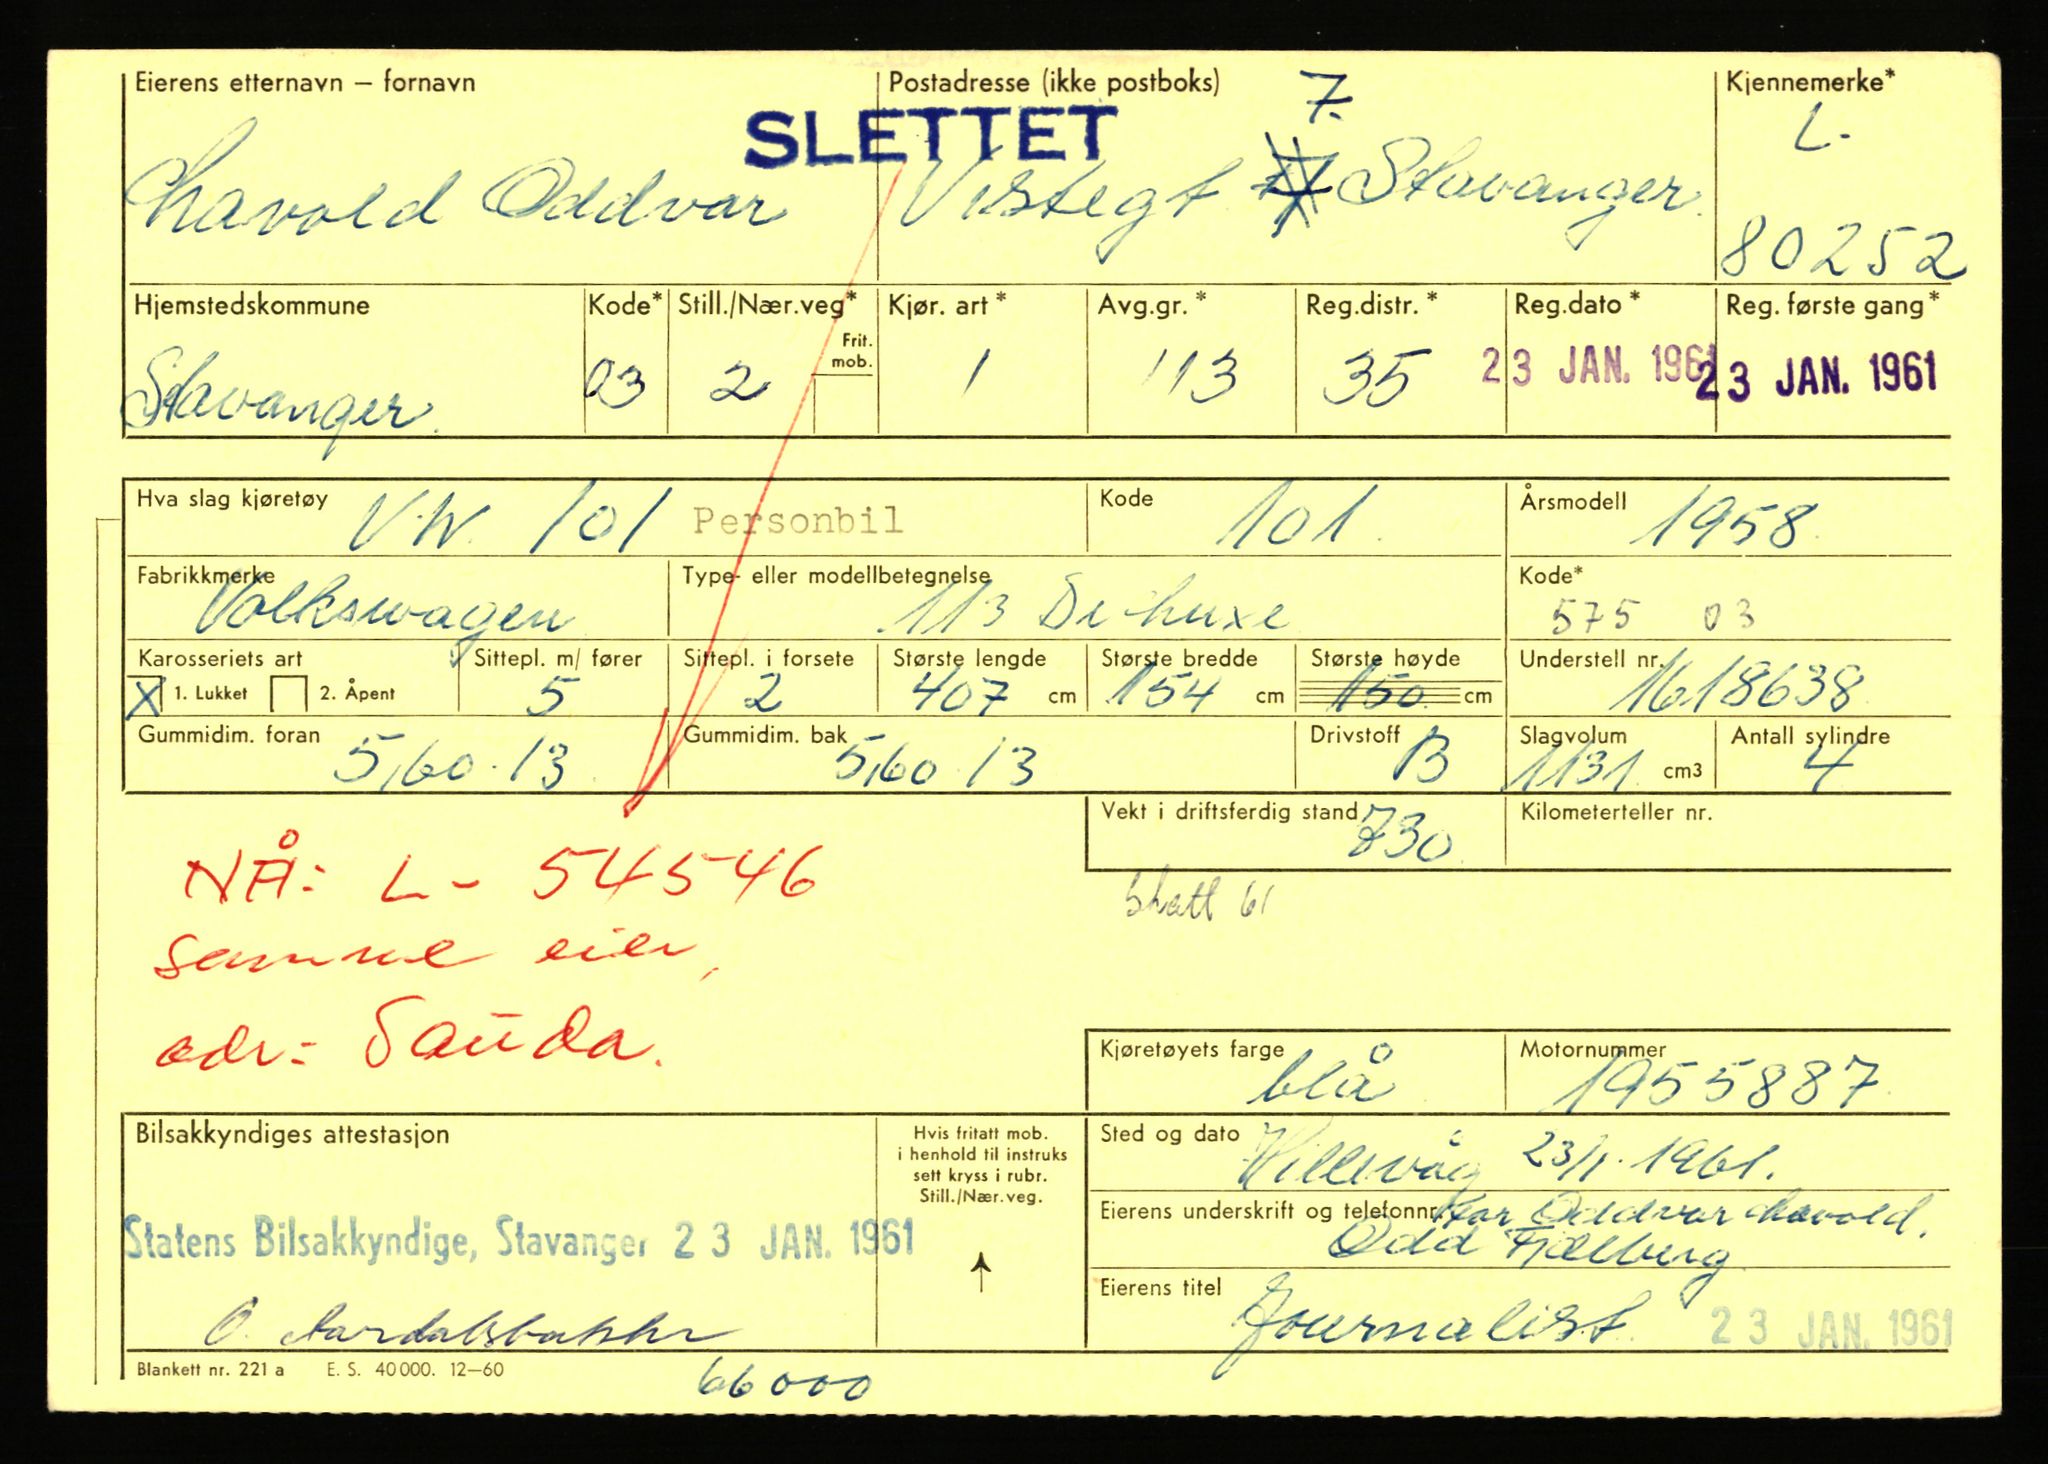 Eierens etternavn – fornavn Postadresse (ikke postboks) 7. Kjennemerke*
SLETTET L-
Lavold Oddvar Vistegt. Stavanger. 80252
Hjemstedskommune Kode* Still./Nær.veg* Kjør. art* Avg.gr.* Reg.distr.* Reg.dato* Reg. første gang*
Frit. mob.
Stavanger. 03 2 1 113 35 23 JAN. 1961 23 JAN. 1961
Hva slag kjøretøy V.W. 101 Personbil Kode 101. Årsmodell 1958.
Fabrikkmerke Volkswagen Type- eller modellbetegnelse 113 De-luxe Kode* 575 03
Karosseriets art Sittepl. m/ fører Sittepl. i forsete Største lengde Største bredde Største høyde Understell nr.
X 1. Lukket 2. Åpent 5 2 407 cm 154 cm 150 cm 1618638.
Gummidim. foran Gummidim. bak Drivstoff Slagvolum Antall sylindre
5,60.13. 5,60 13 B 1131. cm3 4
Vekt i driftsferdig stand 730. Kilometerteller nr.
NÅ: L- 54546
skatt 61
samme eier,
adr: Sauda.
Kjøretøyets farge blå Motornummer 1955887.
Bilsakkyndiges attestasjon
Hvis fritatt mob.
i henhold til instruks
sett kryss i rubr.
Still./Nær.veg.
Sted og dato Hillevåg 23/1. 1961.
Eierens underskrift og telefonnr. for Oddvar Lavold.
Odd Fjelberg
Statens Bilsakkyndige, Stavanger 23 JAN. 1961
Eierens titel Journalist. 23 JAN. 1961
Blankett nr. 221 a E. S. 40 000. 12–60 66000